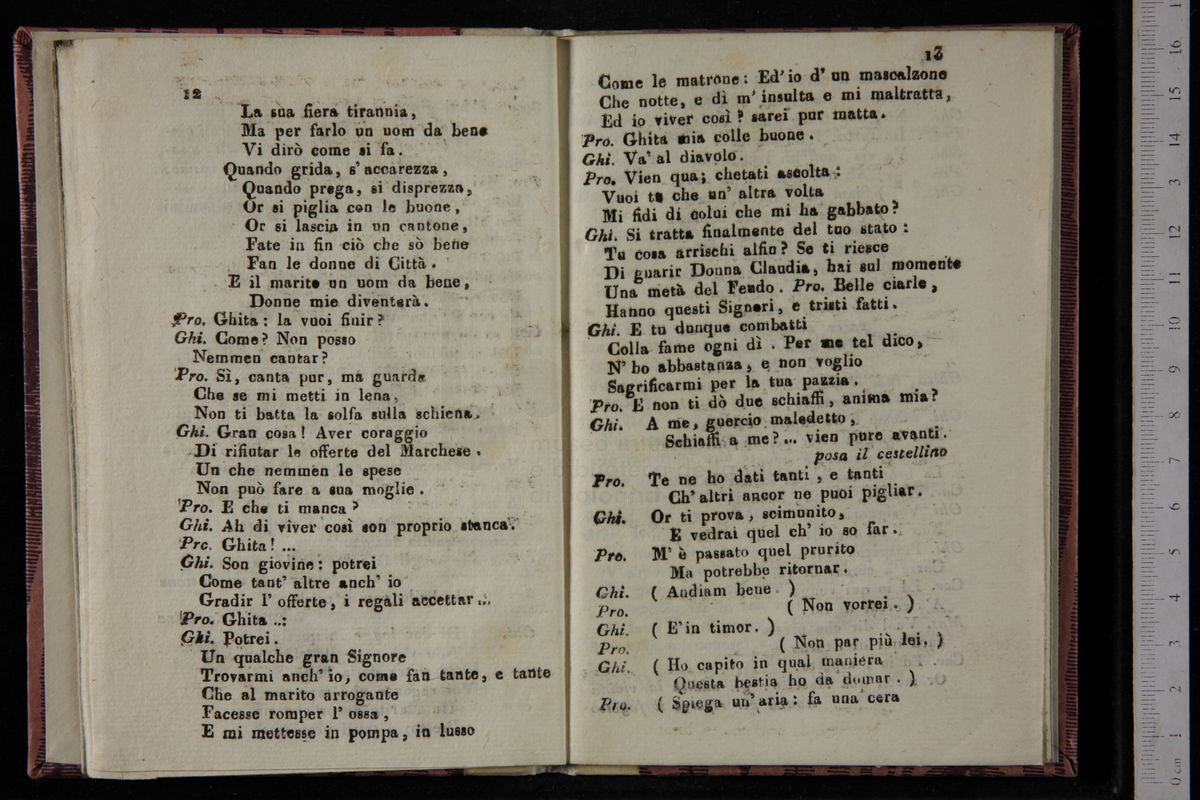 12
La sua fiera tirannia,
Ma per farlo un uom da bene
Vi dirò come si fa.
Quando grida, s' accarezza,
Quando prega, si disprezza,
Or si piglia con le buone,
Or si lascia in un cantone,
Fate in fin ciò che sò bene
Fan le donne di Città.
E il marito un uom da bene,
Donne mie diventerà.
Pro. Ghita: la vuoi finir?
Ghi. Come? Non posso
Nemmen cantar?
Pro. Sì, canta pur, ma guarda
Che se mi metti in lena,
Non ti batta la solfa sulla schiena.
Ghi. Gran cosa! Aver coraggio
Di rifiutar le offerte del Marchese.
Un che nemmen le spese
Non può fare a sua moglie.
Pro. E che ti manca?
Ghi. Ah di viver così son proprio stanca.
Pro. Ghita! ...
Ghi. Son giovine: potrei
Come tant' altre anch' io
Gradir l' offerte, i regali accettar...
Pro. Ghita ..:
Ghi. Potrei.
Un qualche gran Signore
Trovarmi anch' io, come fan tante, e tante
Che al marito arrogante
Facesse romper l' ossa,
E mi mettesse in pompa, in lusso
13
Come le matrone: Ed' io d' un mascalzone
Che notte, e dì m' insulta e mi maltratta,
Ed io viver così? sarei pur matta.
Pro. Ghita mia colle buone.
Ghi. Va' al diavolo.
Pro. Vien qua; chetati ascolta:
Vuoi tu che un' altra volta
Mi fidi di colui che mi ha gabbato?
Ghi. Si tratta finalmente del tuo stato:
Tu cosa arrischi alfin? Se ti riesce
Di guarir Donna Claudia, hai sul momento
Una metà del Feudo. Pro. Belle ciarle,
Hanno questi Signori, e tristi fatti.
Ghi. E tu dunque combatti
Colla fame ogni dì. Per me tel dico,
N' ho abbastanza, e non voglio
Sagrificarmi per la tua pazzia.
Pro. E non ti dò due schiaffi, anima mia?
Ghi. A me, guercio maledetto,
Schiaffi a me?... vien pure avanti.
posa il cestellino
Pro. Te ne ho dati tanti, e tanti
Ch' altri ancor ne puoi pigliar.
Ghi. Or ti prova, scimunito,
E vedrai quel ch' io so far.
Pro. M' è passato quel prurito
Ma potrebbe ritornar.
Ghi. ( Andiam bene. )
Pro. ( Non vorrei. )
Ghi. ( E' in timor. )
Pro. ( Non par più lei. )
Ghi. ( Ho capito in qual maniera
Questa bestia ho da domar. )
Pro. ( Spiega un' aria: fa una cera